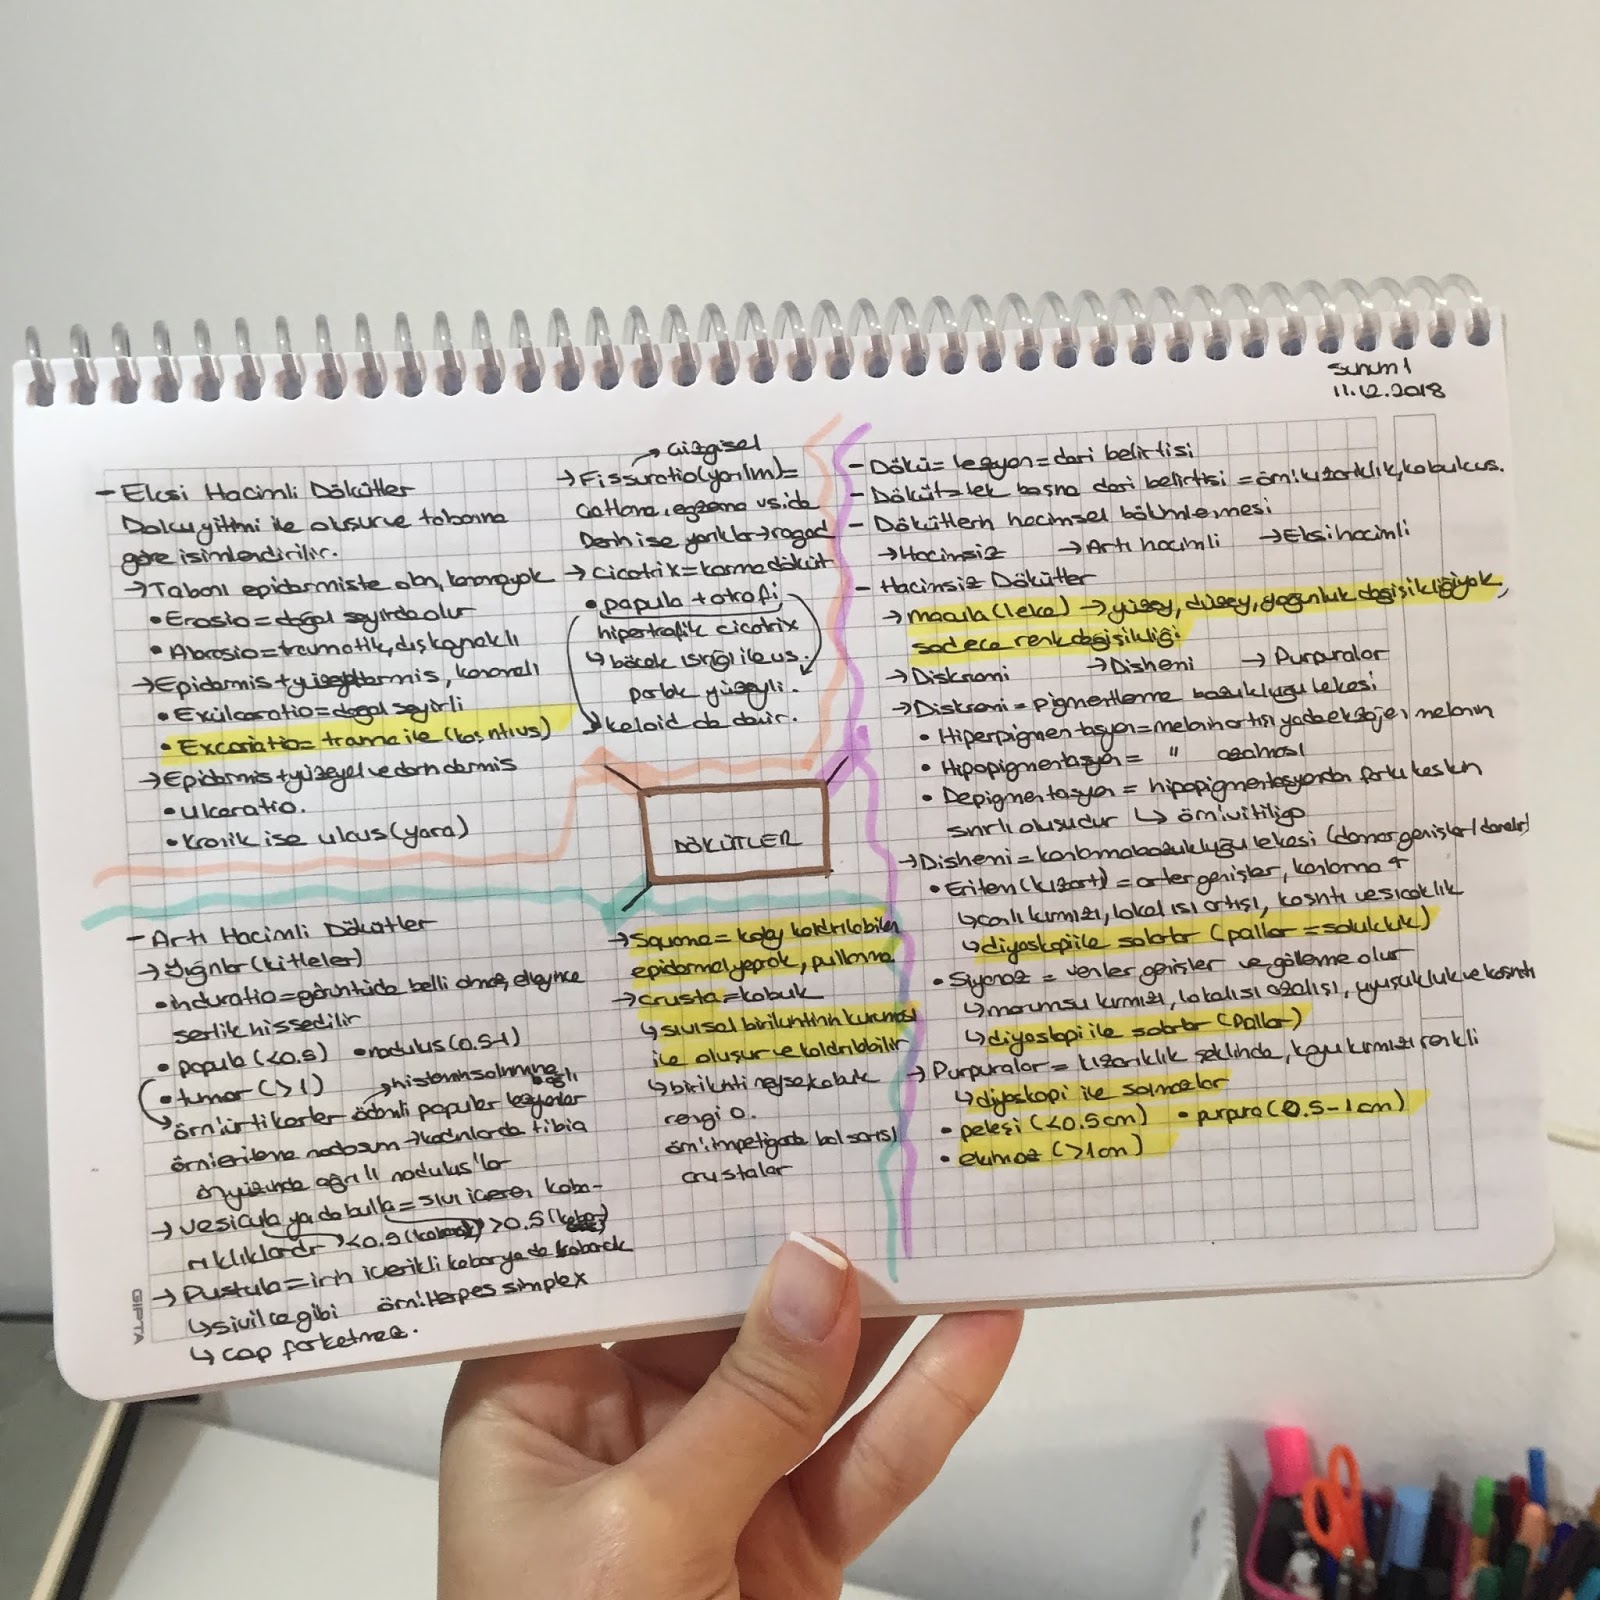 Sunum 1
11.12.2018
- Eksi Hacimli Döküтler
Doku yitimi ile oluşur ve tabanına
göre isimlendirilir.
→ Tabanı epidermiste olan, kanama yok
• Erosio = doğal seyirde olur
• Abrosio = travmatik, dış kaynaklı
→ Epidermis + yüzeyel dermis, kanamalı
• Exülceratio = doğal seyirli
• Excoriatio = travma ile (kaşıntı vs)
→ Epidermis + yüzeyel ve derin dermis
• Ulceratio.
• Kronik ise ulcus (yara)
→ Çizgisel
→ Fissuratio (yarılm) =
Çatlama, egzema vs.de
Derin ise yarıklar → ragad
→ Cicatrix = karma döküt
• papula + atrofi
hipertrofik cicatrix
↳ böcek ısırığı ile vs.
parlak yüzeyli.
keloid de denir.
- Dökü = lezyon = deri belirtisi
- Döküt = tek başına deri belirtisi = örn: kızarıklık, kabuk vs.
- Dökütlerin hacimsel bölümlemesi
→ Hacimsiz → Artı hacimli → Eksi hacimli
- Hacimsiz Dökütler
→ macula (leke) → yüzey, düzey, yoğunluk değişikliği yok,
sadece renk değişikliği.
→ Diskromi → Dishemi → Purpuralar
→ Diskromi = pigmentleme bozukluğu lekesi
• Hiperpigmentasyon = melanin artışı ya da ekzojen melanin
• Hipopigmentasyon = " azalması
• Depigmentasyon = hipopigmentasyondan farkı keskin
sınırlı oluşudur ↳ örn: vitiligo
→ Dishemi = kanlanma bozukluğu lekesi (damar genişler/daralır)
• Eritem (kızartı) = arter genişler, kanlanma ↑
↳ canlı kırmızı, lokal ısı artışı, kaşıntı ve sıcaklık
↳ diyaskopi ile solarlar (pallor = solukluk)
• Siyanoz = venler genişler ve gölleme olur
↳ morumsu kırmızı, lokal ısı azalışı, uyuşukluk ve kaşıntı
↳ diyaskopi ile solarlar (Pallor)
→ Purpuralar = kızarıklık şeklinde, koyu kırmızı renkli
↳ diyaskopi ile solmazlar
• peteşi (<0.5cm) • purpura (0.5-1cm)
• ekimoz (>1cm)
DÖKÜTLER
- Artı Hacimli Dökütler
→ Yığınlar (kitleler)
• induratio = görüntüde belli olmaz, deyince
sertlik hissedilir
• papula (<0.5) • nodulus (0.5-1)
• tumor (>1) → histamin salınımına bağlı
örn: ürtikerler ödemli papuler lezyonlar
örn: eritema nodosum → kadınlarda tibia
önyüzünde ağrılı nodulus'lar
→ Vesicula ya da bulla = sıvı içeren kaba-
rıklıklardır <0.5 >0.5
→ Pustula = irin içerikli kabar ya da kabarcık
↳ sivilce gibi örn: Herpes simplex
↳ çap farketmez.
→ Squama = kolay kaldırılabilen
epidermal yaprak, pullanma
→ Crusta = kabuk
↳ sıvısal birikintinin kuruması
ile oluşur ve kaldırılabilir
↳ birikinti neyse kabuk
rengi o.
örn: impetigoda bal sarısı
crustalar
GIPTA